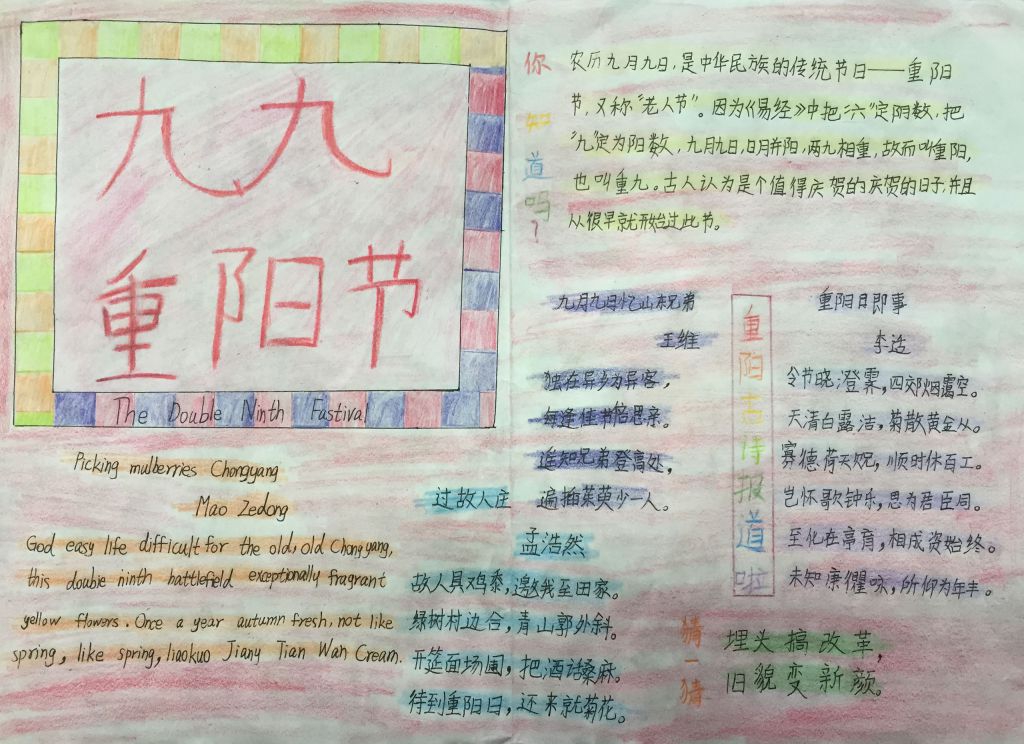 九九
重阳节
The Double Ninth Fastival
你知道吗?
农历九月九日,是中华民族的传统节日——重阳
节,又称“老人节”。因为《易经》中把“六”定阴数,把
“九”定为阳数,九月九日,日月并阳,两九相重,故而叫重阳,
也叫重九。古人认为是个值得庆贺的庆贺的日子,并且
从很早就开始过此节。
九月九日忆山东兄弟
王维
独在异乡为异客,
每逢佳节倍思亲。
遥知兄弟登高处,
遍插茱萸少一人。
重阳古诗报道啦
重阳日即事
李适
令节晓澄霁,四郊烟霭空。
天清白露洁,菊散黄金丛。
寡德荷天贶,顺时休百工。
岂怀歌钟乐,思为君臣同。
至化在亭育,相成资始终。
未知康衢咏,所仰为年丰。
Picking mulberries Chongyang
Mao Zedong
God easy life difficult for the old, old Chongyang,
this double ninth battlefield exceptionally fragrant
yellow flowers. Once a year autumn fresh, not like
spring, like spring, liaokuo Jiany Tian Wan Cream.
过故人庄
孟浩然
故人具鸡黍,邀我至田家。
绿树村边合,青山郭外斜。
开筵面场圃,把酒话桑麻。
待到重阳日,还来就菊花。
猜一猜
埋头搞改革,
旧貌变新颜。